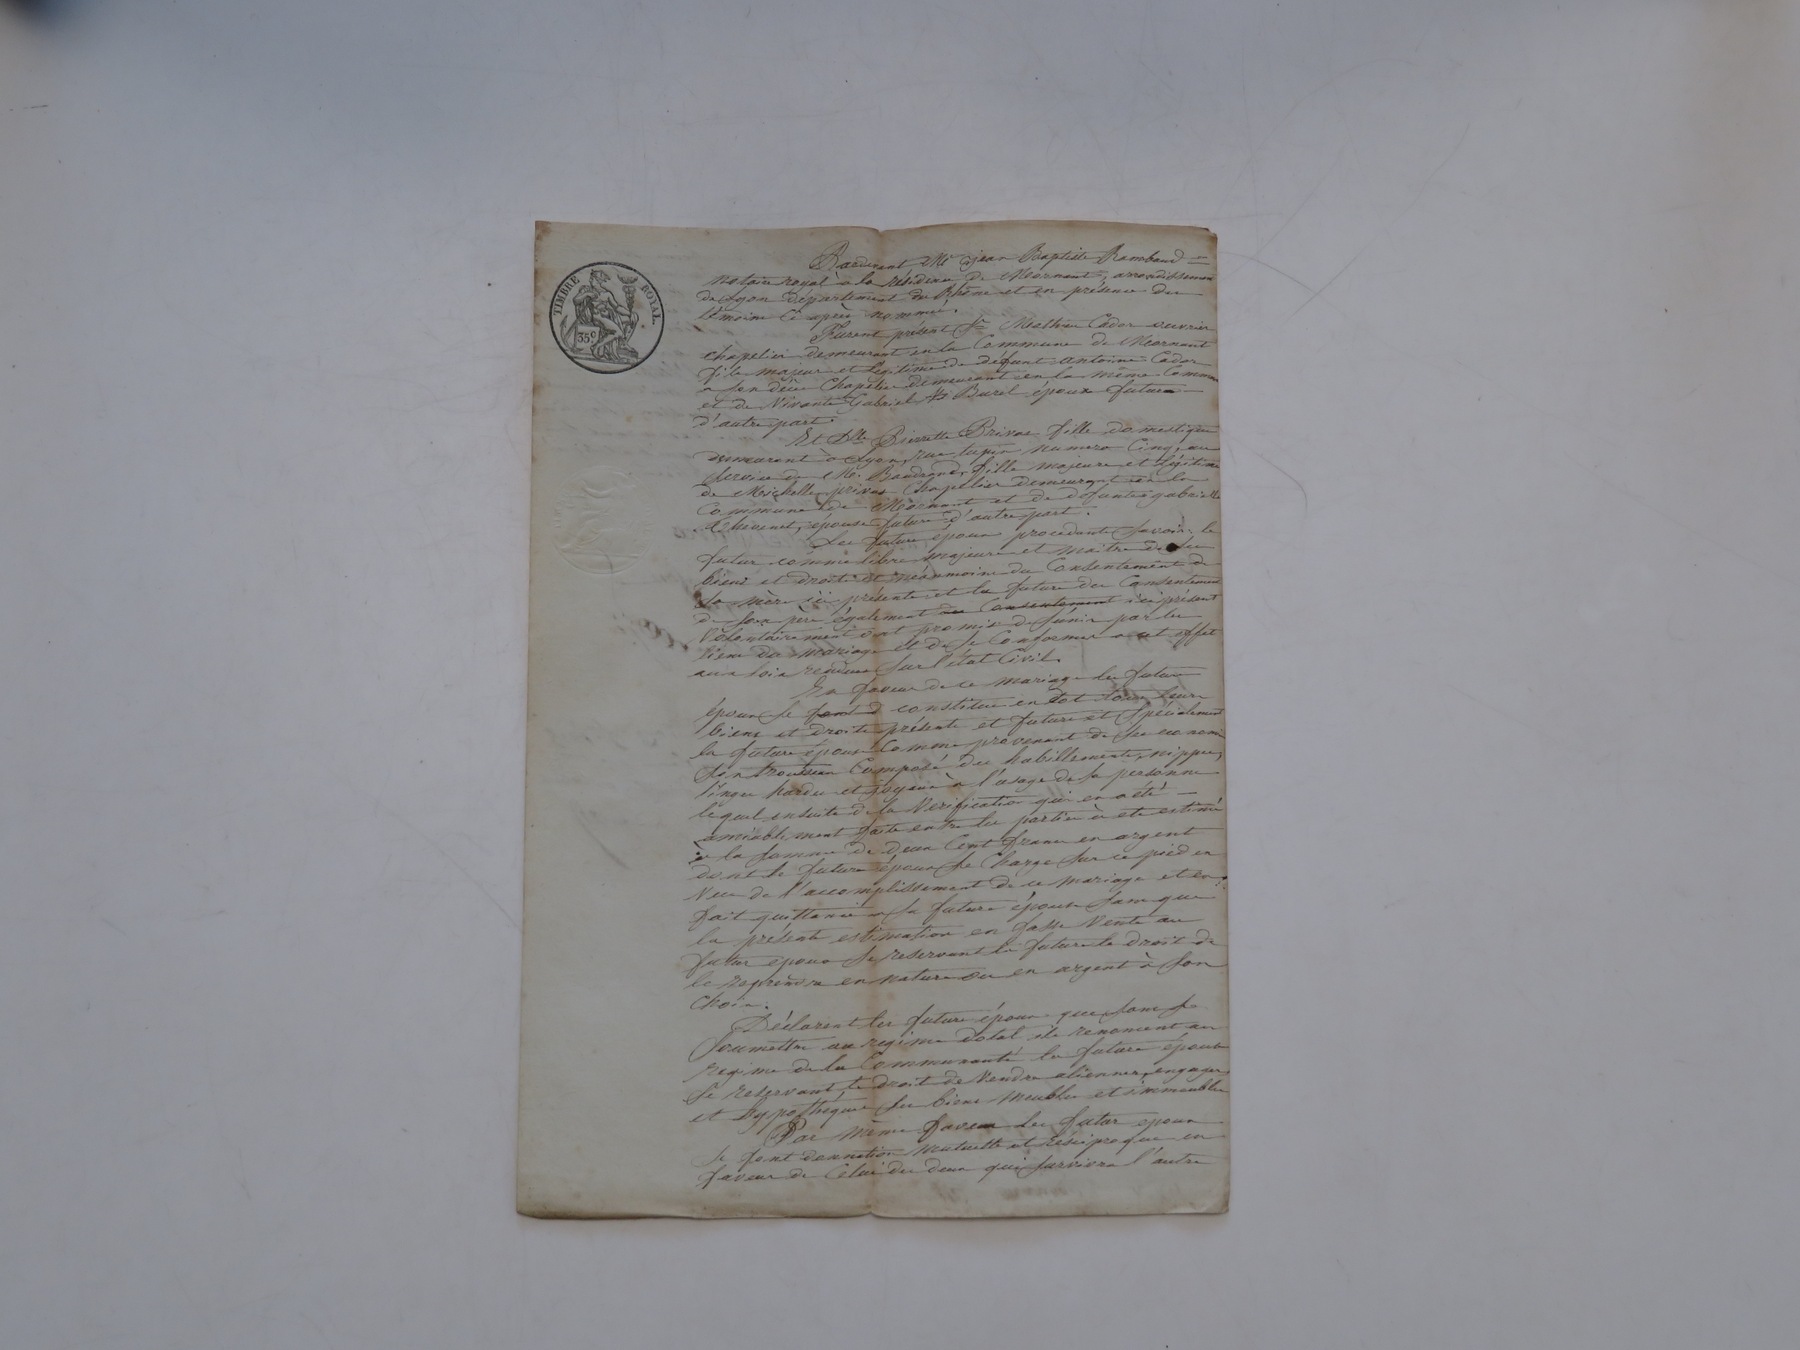 TIMBRE ROYAL
35c
Pardevant Me Jean Baptiste Rambaud
notaire royal à la résidence de Mornant, arrondissement
de Lyon département du Rhône et en présence des
témoins ci après nommés.
Furent présent Sr Mathieu Cador ouvrier
chapelier demeurant en la Commune de Mornant
fils majeur et légitime de défunt antoine Cador
a son décès Chapelier demeurant en la même Commune
et de Vivante Gabriel Burel époux futur
d'autre part
Et Dlle Pierrette Privas fille domestique
demeurant à Lyon, rue tupin numero Cinq, au
service de Mr. fille majeure et légitime
de privas Chapelier demeurant en la
Commune de Mornant et de défunte gabrielle
Thevenet, épouse future d'autre part.
Les futurs époux procédant savoir le
futur comme libre majeure et maitre de ses
biens et droits et néanmoins du Consentement de
sa mère ici présente et la future du Consentement
de son pere également du Consentement ici présent
Volontairement ont promis de s'unir par les
liens du mariage et de se Conformer a cet effet
aux lois rendues sur l'état Civil.
En faveur de ce mariage les futurs
époux se font d constitue en dot tous leurs
biens et droits présents et futurs et spécialement
la future épouse Comme provenant de ses economies
son trousseau Composé des habillements, nippes,
linges hardes et joyaux à l'usage de sa personne
lequel ensuite de la Vérification qui en a été
amiablement faite entre les parties à été estimé
à la somme de deux Cent francs en argent
dont le futur époux se Charge sur ce pied en
Vue de l'accomplissement de ce mariage et en
fait quittance a sa future épouse sans que
la présente estimation en fasse Vente au
futur époux se réservant la future le droit de
le reprendre en nature ou en argent à son
Choix.
Déclarent les futurs époux que sans se
soumettre au régime dotal ils renoncent au
régime de la Communauté la future épouse
se réservant le droit de Vendre aliénner, engager,
et hypothéquer ses biens meubles et immeubles
Par même faveur les futur époux
se font donnation mutuelle et réciproque en
faveur de Celui des deux qui survivra l'autre